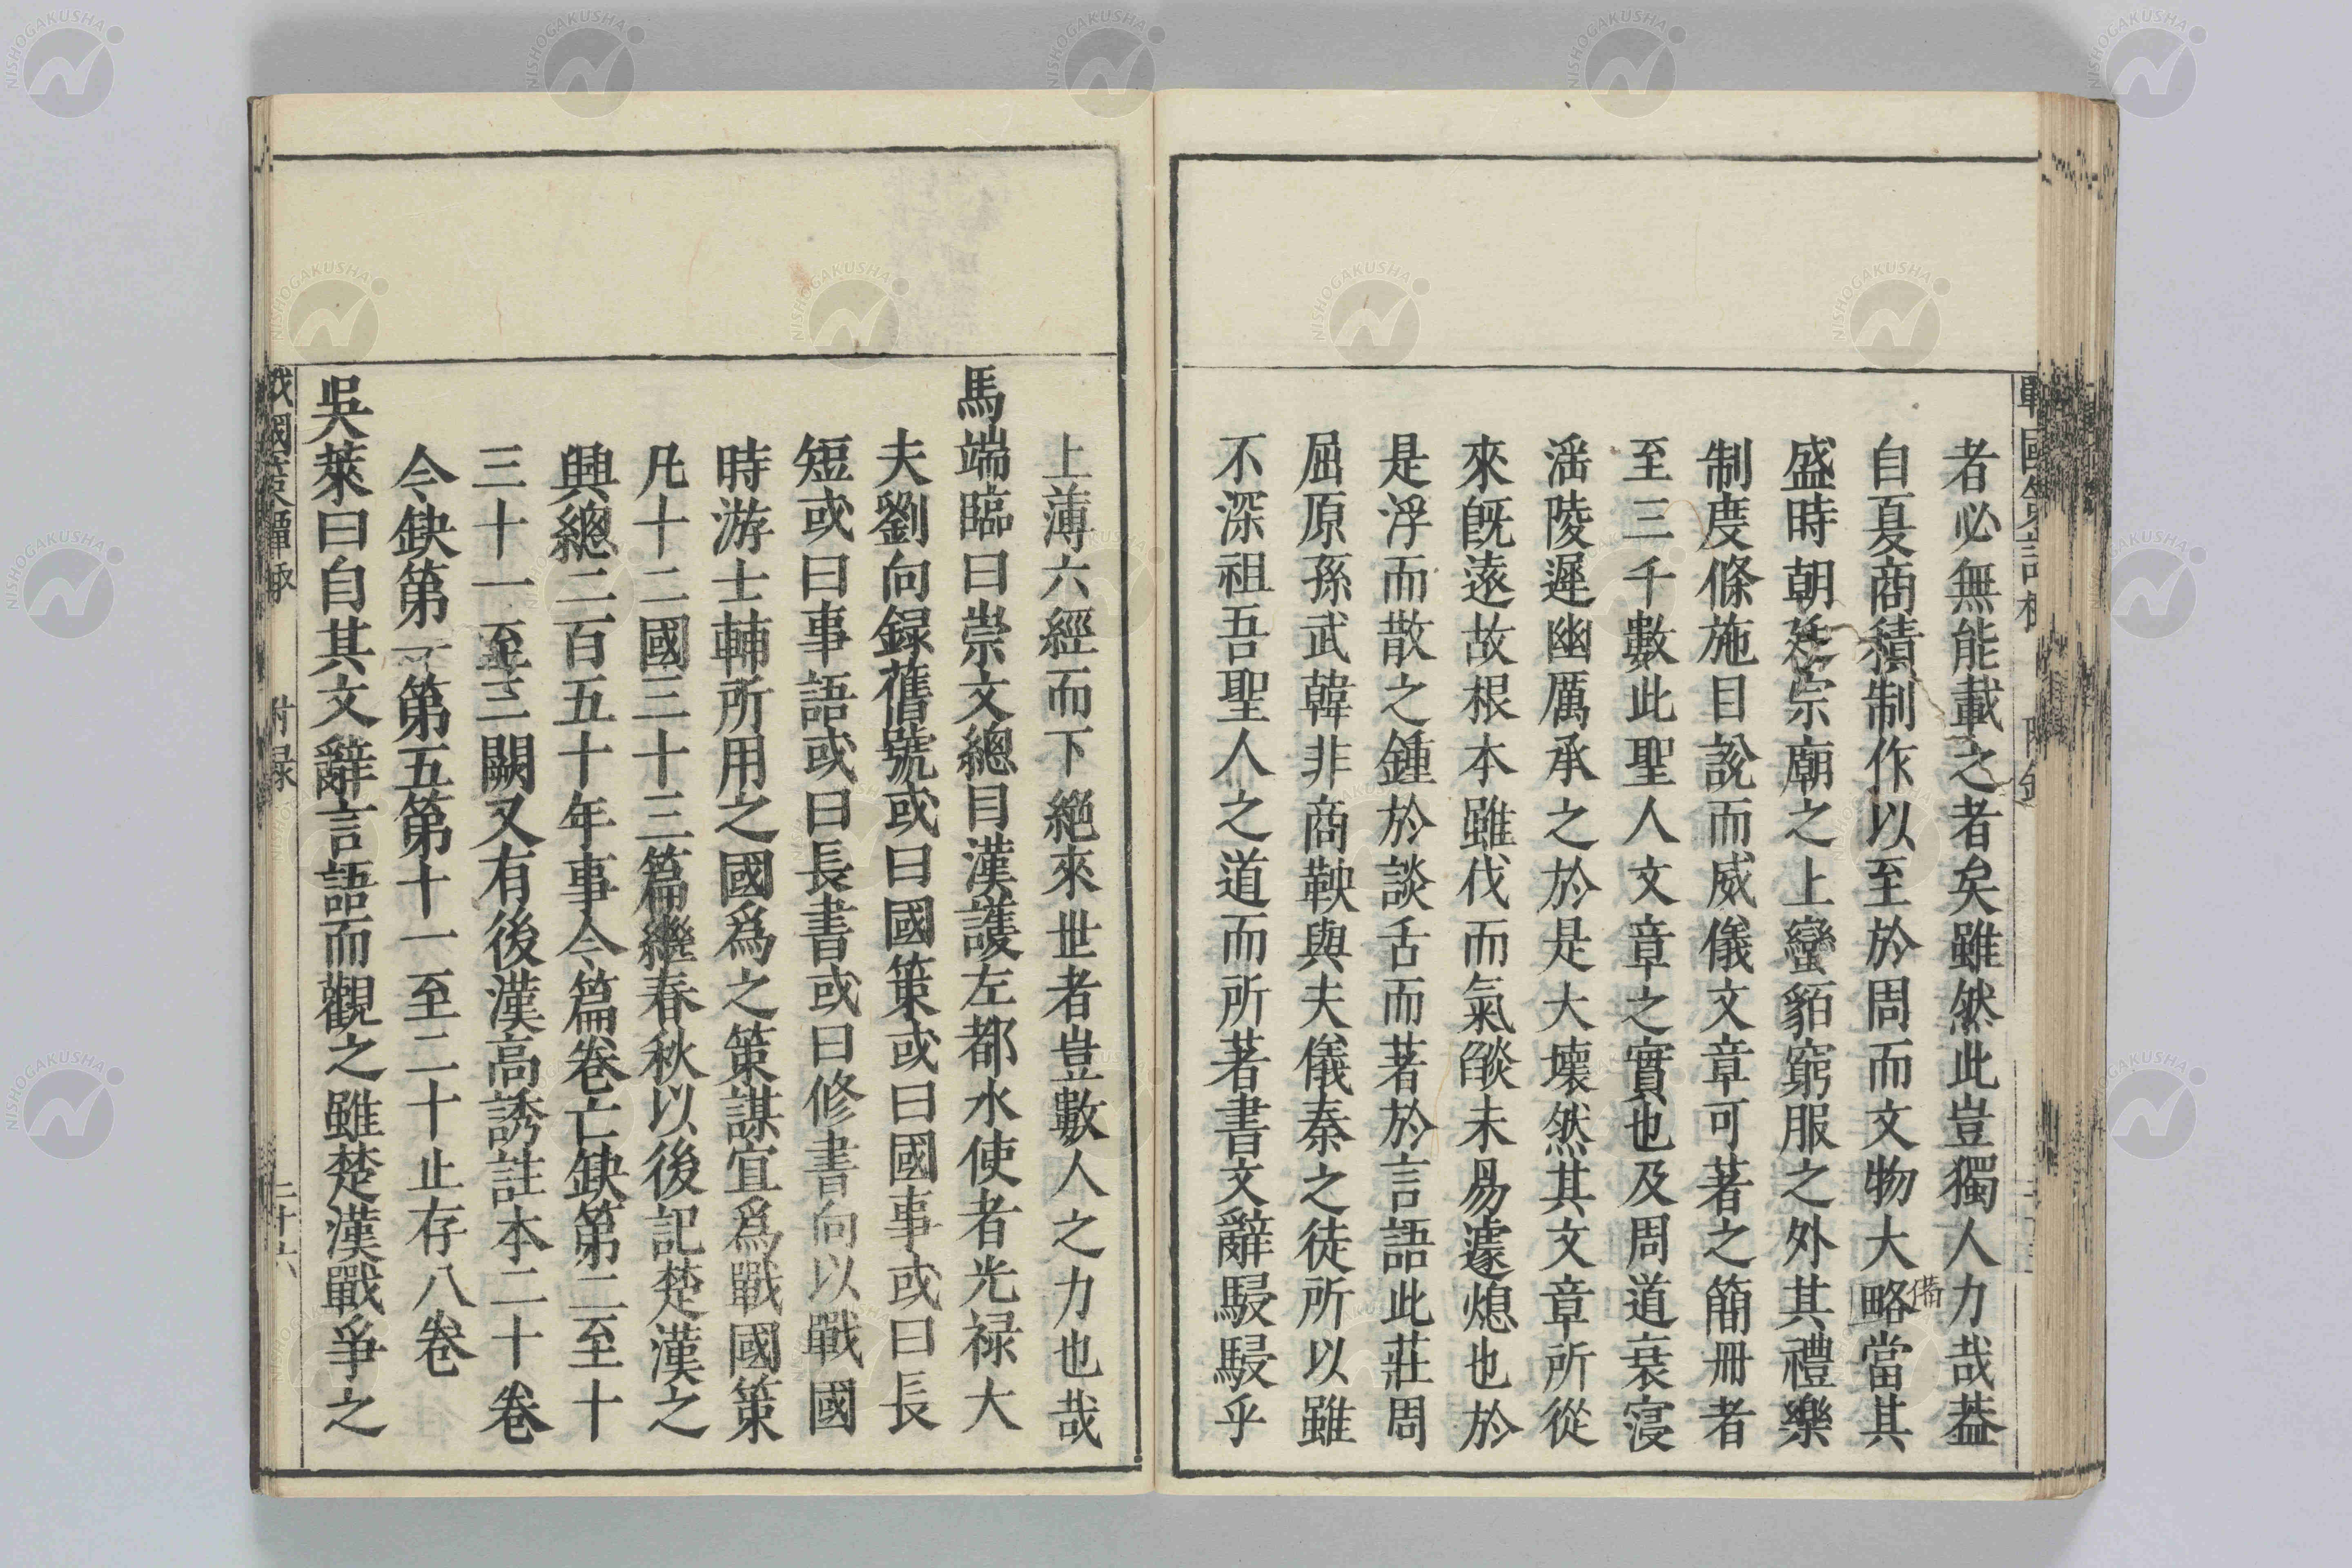 者必無能載之者矣雖然此豈獨人力哉葢
自夏商積制作以至於周而文物大略當其
備
盛時朝廷宗廟之上蠻貊窮服之外其禮樂
制度條施目說而威儀文章可著之簡冊者
至三千數此聖人文章之實也及周道衰寖
滛陵遲幽厲承之於是大壞然其文章所從
來旣遠故根本雖伐而氣燄未易遽熄也於
是浮而散之鍾於談舌而著於言語此莊周
屈原孫武韓非商鞅與夫儀秦之徒所以雖
不深祖吾聖人之道而所著書文辭駸駸乎
上薄六經而下絕來世者豈數人之力也哉
馬端臨曰崇文總目漢護左都水使者光禄大
夫劉向録舊號或曰國策或曰國事或曰長
短或曰事語或曰長書或曰修書向以戰國
時游士輔所用之國爲之策謀宜爲戰國策
凡十二國三十三篇繼春秋以後記楚漢之
興總二百五十年事今篇卷亡缺第二至十
三十一至三闕又有後漢高誘註本二十卷
今缺第一第五第十一至二十止存八卷
吳萊曰自其文辭言語而觀之雖楚漢戰爭之
戰國策譚棷 附録 二十六
NISHOGAKUSHA